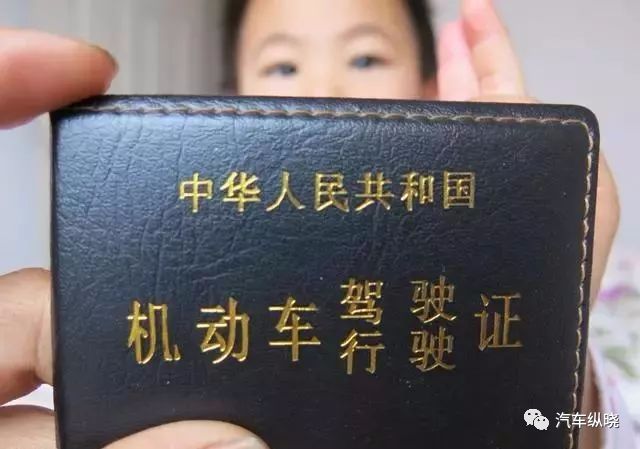 中华人民共和国
机动车驾驶证
行驶
汽车纵晓